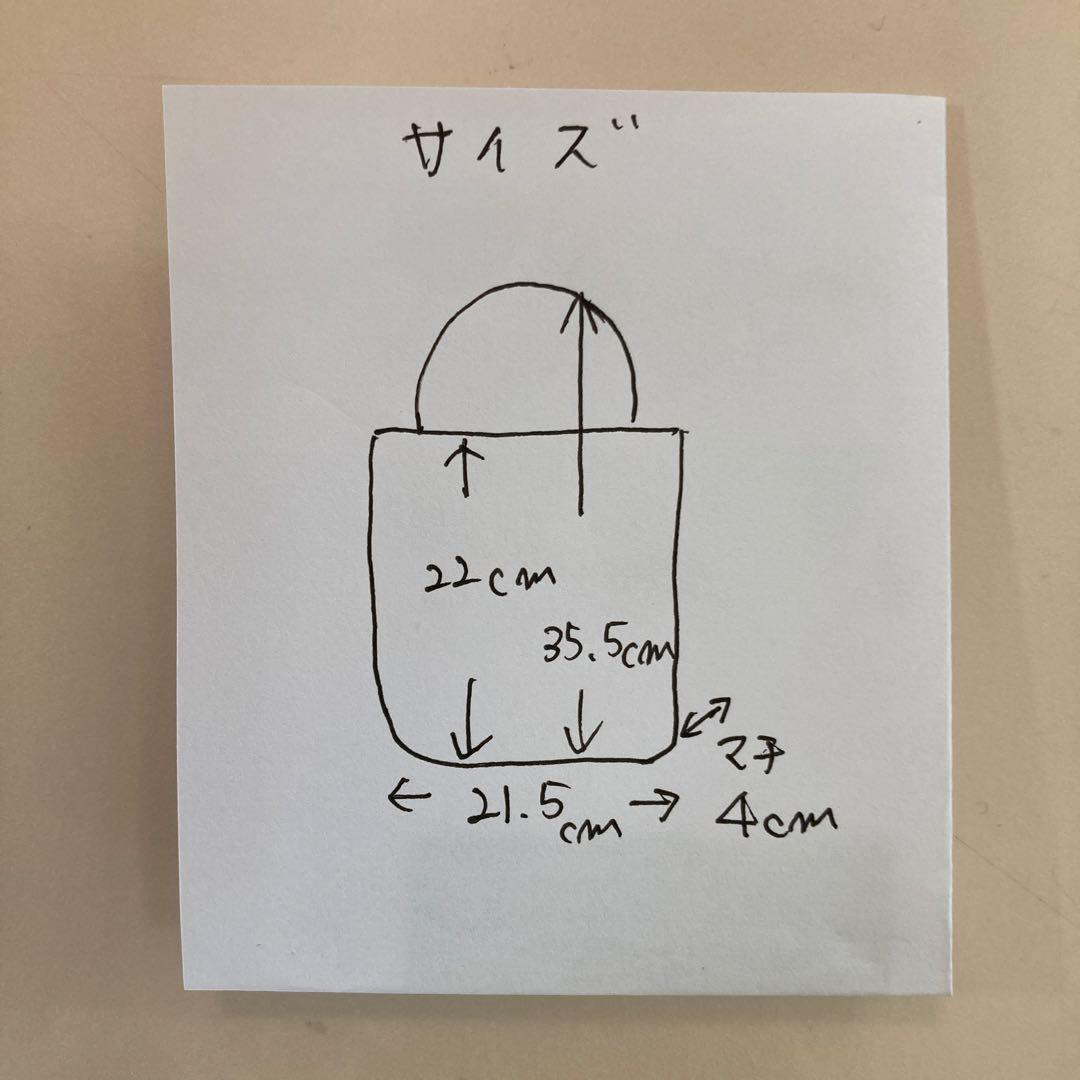 サイズ
22cm
35.5cm
マチ
21.5cm
4cm